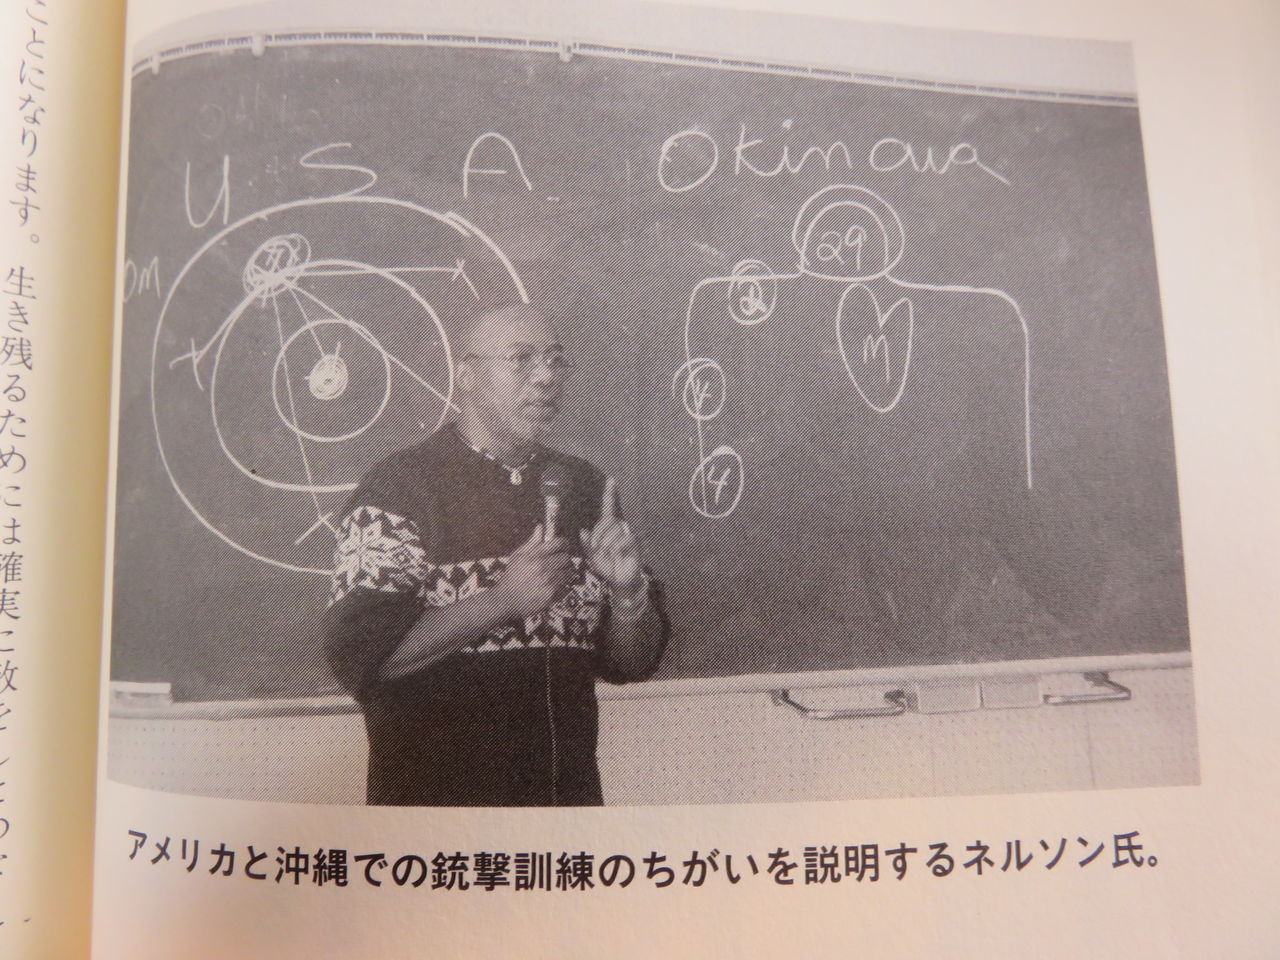 ことになります。生き残るためには確実に敵を
U S A
Okinawa
29
2
m
4
4
アメリカと沖縄での銃撃訓練のちがいを説明するネルソン氏。